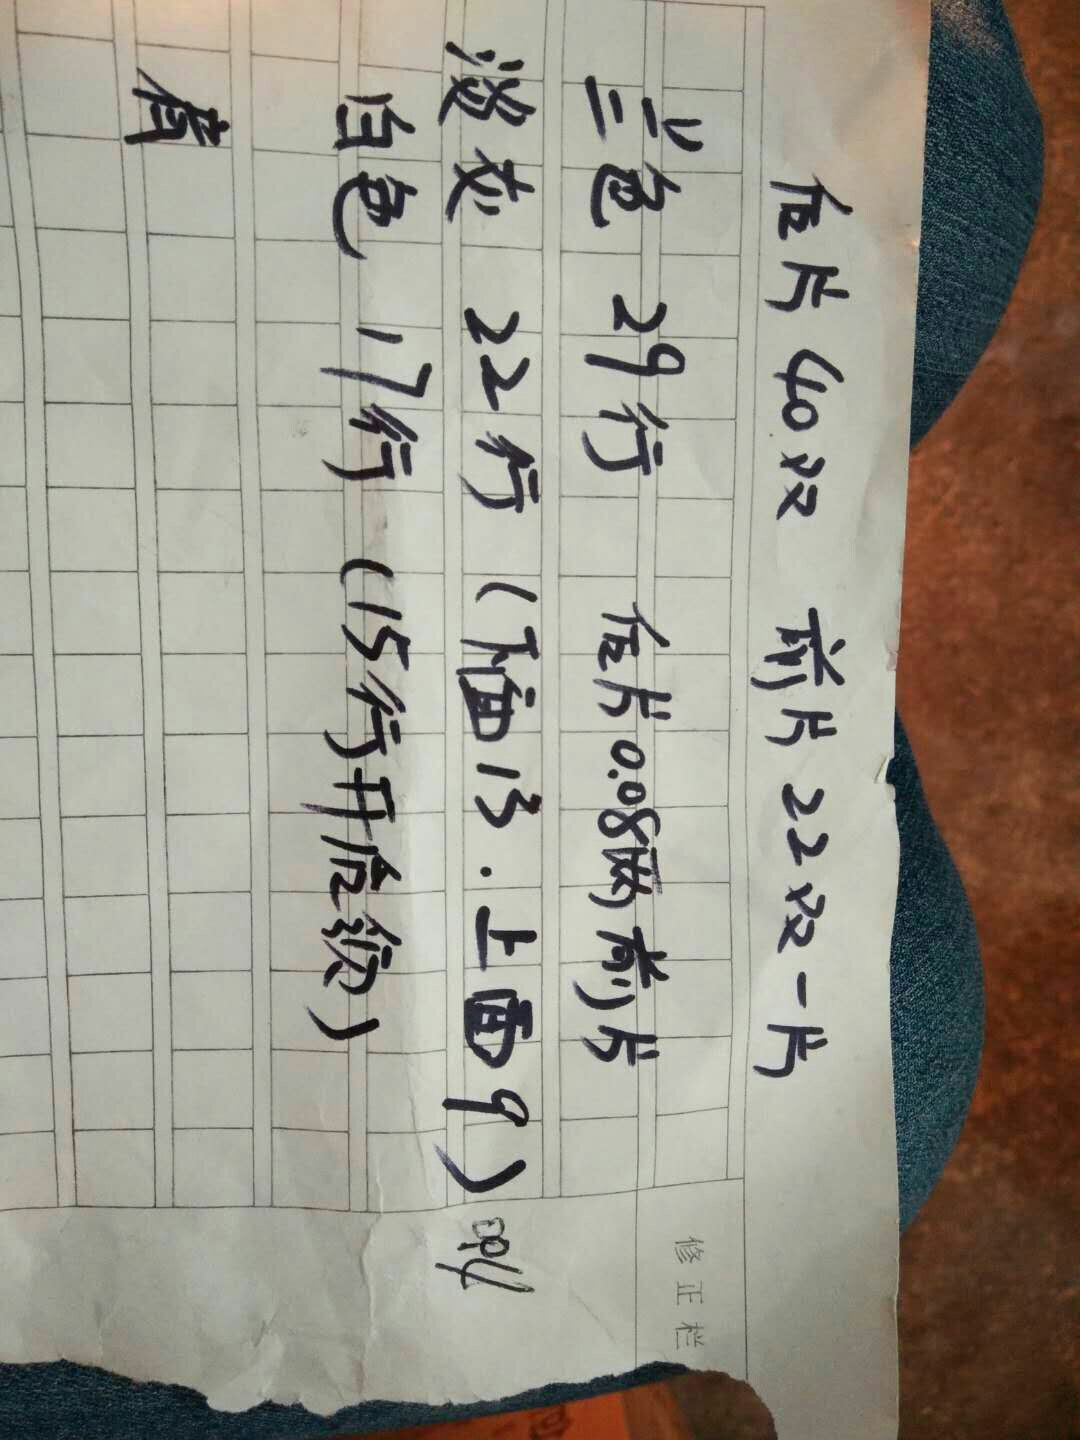 后片40双 前片22双一片
兰色 29行 后片0.08两前片
淡灰 22行(下面13.上面9)
白色 17行(15行开后领)
修正栏